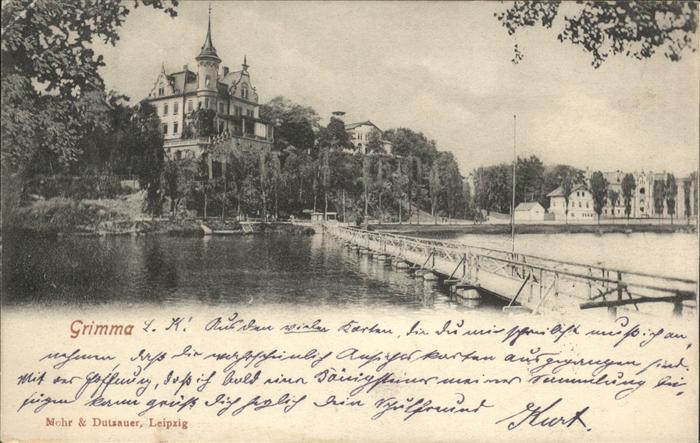 Grimma L. K! Aus den vielen Karten, die du mir schreibst muß ich an,
nehmen, daß dir wahrscheinlich Ansichtskarten ausgegangen sind.
Mit der Hoffnung, daß ich bald eine Königsteiner meiner Sammlung bei
fügen kann grüßt dich herzlich dein Schulfreund Kurt.
Mohr & Dutzauer, Leipzig